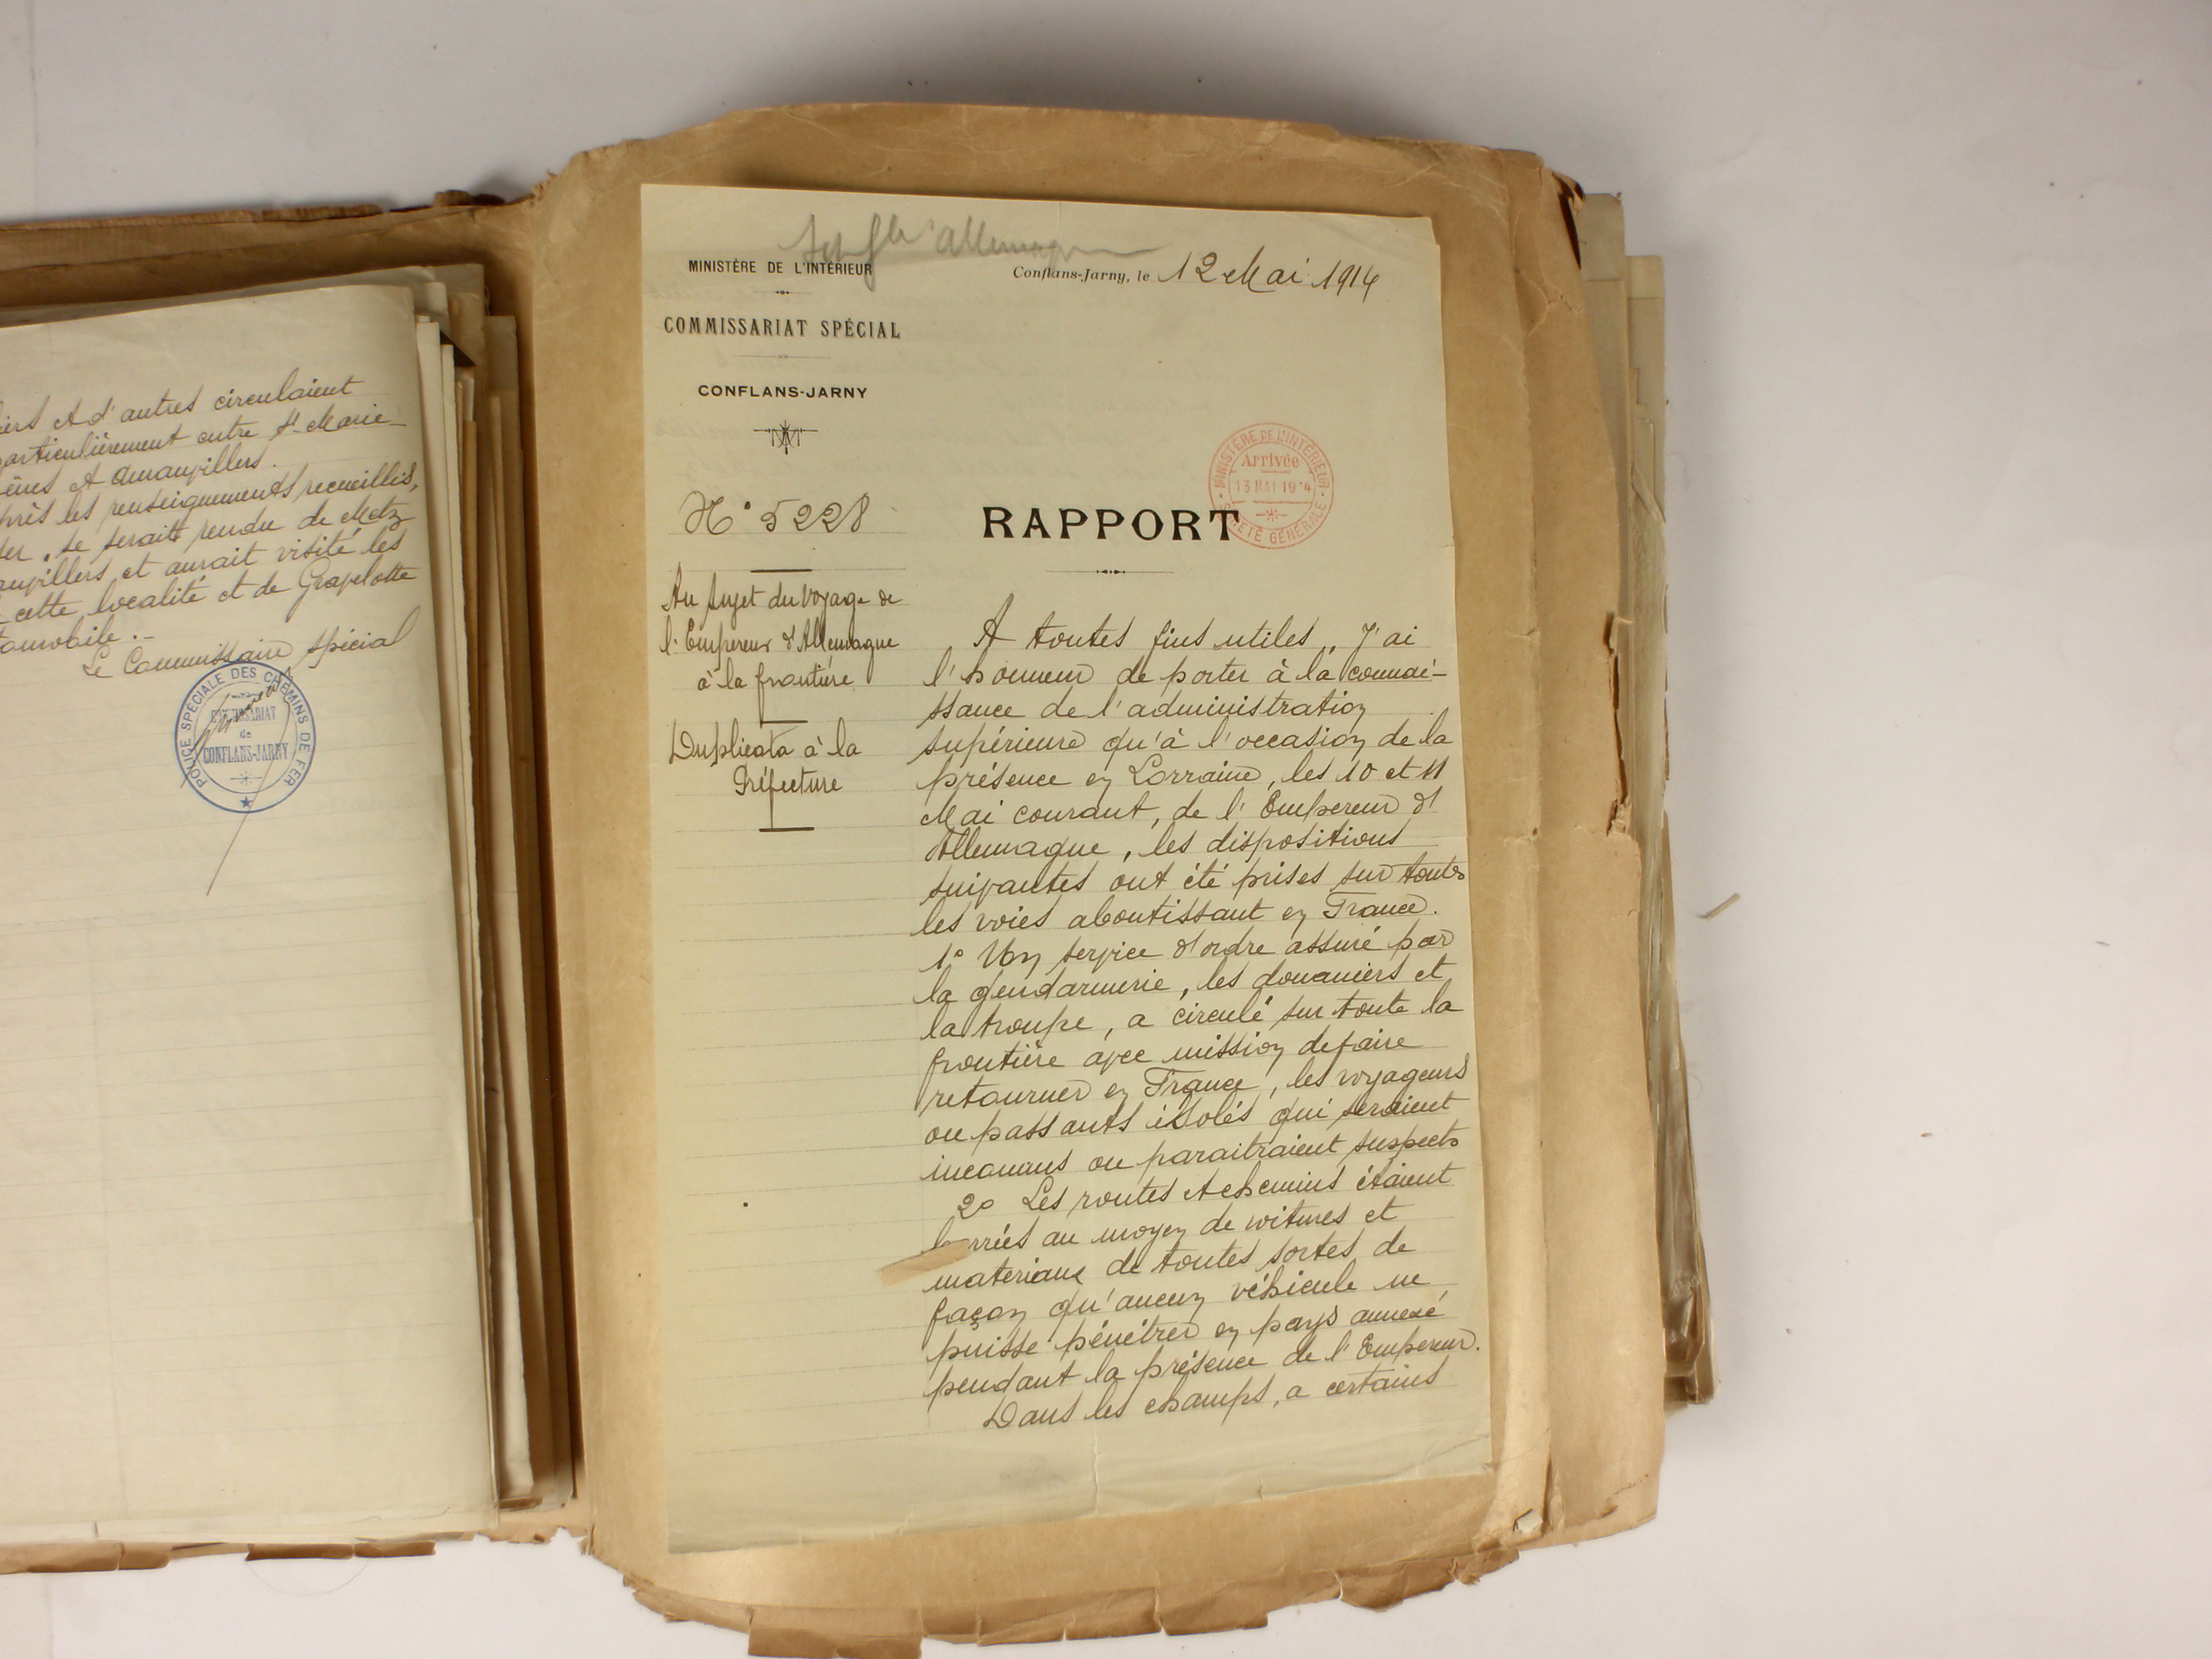 et d'autres circulaient
particulièrement entre Ste Marie
et Amanvillers.
les renseignements recueillis,
se serait rendu de Metz
et aurait visité les
cette localité et de Gravelotte
Le Commissaire spécial
POLICE SPÉCIALE DES CHEMINS DE FER
COMMISSARIAT
de
CONFLANS-JARNY
allemagne
MINISTÈRE DE L'INTÉRIEUR
Conflans-Jarny, le 12 Mai 1914
COMMISSARIAT SPÉCIAL
CONFLANS-JARNY
MINISTÈRE DE L'INTÉRIEUR
Arrivée
13 MAI 1914
SÛRETÉ GÉNÉRALE
N° 5228
RAPPORT
Au sujet du voyage de
l'Empereur d'Allemagne
à la frontière
Duplicata à la
Préfecture
A toutes fins utiles, j'ai
l'honneur de porter à la connai-
ssance de l'administration
supérieure qu'à l'occasion de la
présence en Lorraine, les 10 et 11
Mai courant, de l'Empereur d'
Allemagne, les dispositions
suivantes ont été prises sur toutes
les voies aboutissant en France.
1° Un service d'ordre assuré par
la gendarmerie, les douaniers et
la troupe, a circulé sur toute la
frontière avec mission de faire
retourner en France, les voyageurs
ou passants isolés qui seraient
inconnus ou paraitraient suspects
2° Les routes et chemins étaient
barrés au moyen de voitures et
materiaux de toutes sortes de
façon qu'aucun véhicule ne
puisse pénétrer en pays annexé
pendant la présence de l'Empereur.
Dans les champs, a certains